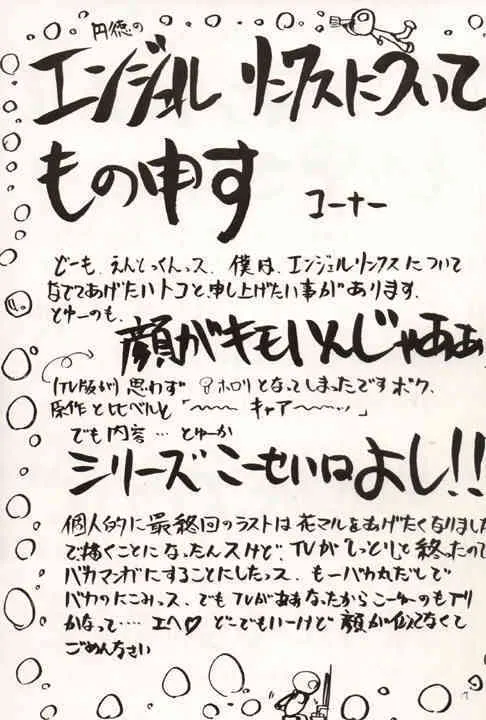 円徳の
エンジェルリンクスについて
もの申す
コーナー
どーも、えんとっくんっス、僕は、エンジェルリンクスについて
なでてあげたいトコと、申し上げたい事があります、
とゆーのも、
顔がキモいんじゃああ
(TV版が) 思わず ホロリとなってしまったですボク、
原作と比べルと「〜〜〜キャア〜〜〜ッ」
でも内容…とゅーか
シリーズこーせいはよし!!
個人的に最終回のラストは花マルをあげたくなりました
で描くことになったんスけど、TVがしっとりと終ったので
バカマンガにすることにしたっス、もーバカ丸だしで
バカのにこみっス、でもTVがああなったからこーゆーのもアリ
かなって‥‥エヘ♡ どーでもいーけど顔が似てなくて
ごめんなさい